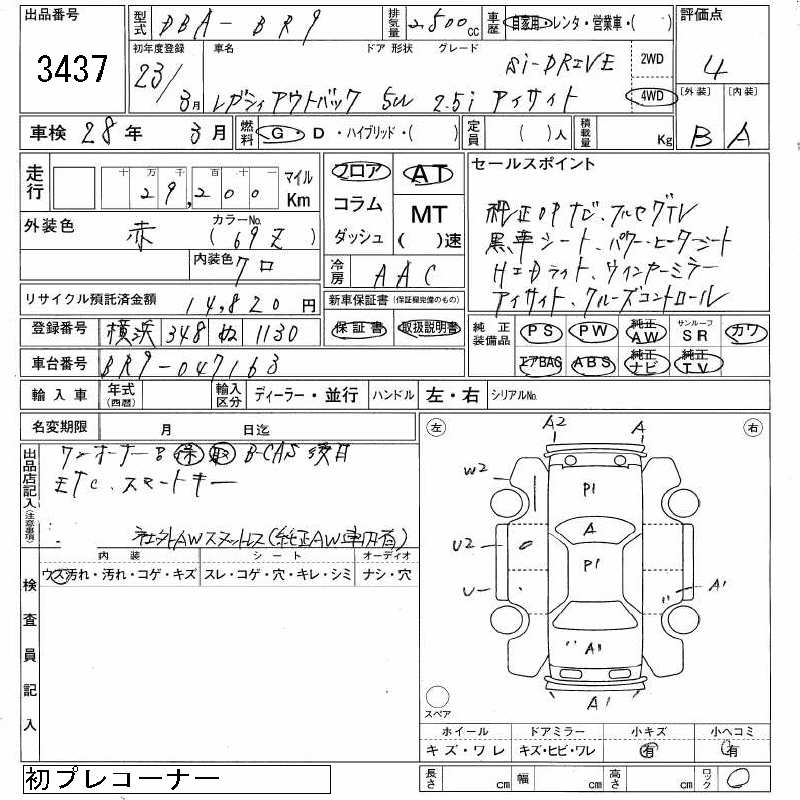 出品番号 3437
型式 DBA-BR9 排気量 2,500cc 車歴 自家用・レンタ・営業車・( ) 評価点 4
初年度登録 23/3月 車名 ドア 形状 グレード Si-DRIVE 2WD 4WD 〔外装〕 B 〔内装〕 A
レガシィアウトバック 5W 2.5i アイサイト
車検 28年 3月 燃料 G・D・ハイブリッド・( ) 定員 ( )人 積載量 Kg
走行 十万千百十一 29,200 マイル Km
フロア コラム ダッシュ AT MT ( )速
セールスポイント
純正OPナビ、フルセグTV
黒革シート、パワーヒーターシート
HIDライト、ウインカーミラー
アイサイト、クルーズコントロール
外装色 赤 カラーNo. (69Z)
内装色 クロ
冷房 AAC
リサイクル預託済金額 14,820円
新車保証書(保証欄完備のもの) 保証書 取扱説明書
登録番号 横浜 348 ぬ 1130
純正装備品 PS PW 純正AW サンルーフSR カワ
エアBAG ABS 純正ナビ 純正TV
車台番号 BR9-047163
輸入車 年式(西暦) 輸入区分 ディーラー・並行 ハンドル 左・右 シリアルNo.
名変期限 月 日迄
出品店記入(注意事項)
ワンオーナー 保 取 B-CAS後日
ETC、スマートキー
社外AWスタッドレス(純正AW車内有)
検査員記入
内装 シート オーディオ
ウス汚れ・汚れ・コゲ・キズ スレ・コゲ・穴・キレ・シミ ナシ・穴
左 右
A2 A
W2 P1
A
U2 P1
U A1
A1
A1
スペア
ホイール ドアミラー 小キズ 小ヘコミ
キズ・ワレ キズ・ヒビ・ワレ 有 有
長さ cm 幅 cm 高さ cm ロック
初プレコーナー